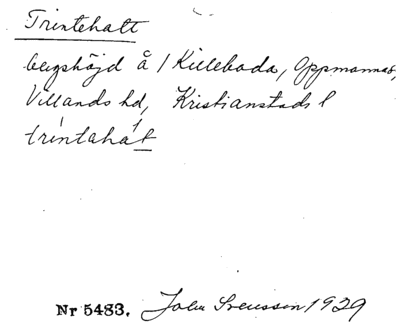 Trintehatt
bergshöjd å 1 Killeboda, Oppmanna s,
Villands hd, Kristianstads l
trintahat
Nr 5483. John Svensson 1929